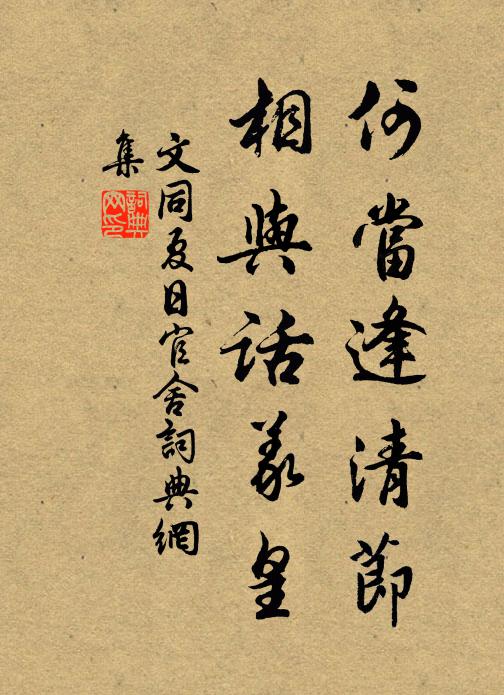 何當逢清節
相與話羲皇
文同夏日官舍詞典網
集
詞典
网印